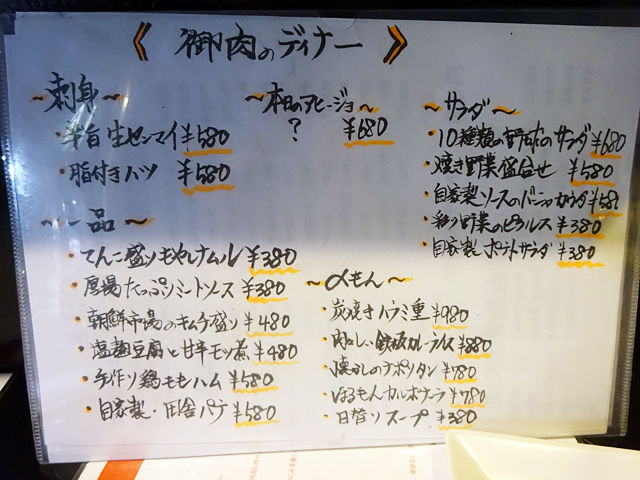 《 御肉のディナー 》
~刺身~
・辛旨生センマイ ¥580
・脂付きハツ ¥580
~本日のアヒージョ~
? ¥680
~サラダ~
・10種類の野菜のサラダ ¥680
・焼き野菜盛合せ ¥580
・自家製ソースのバーニャカウダ ¥58
・彩り野菜のピクルス ¥380
・自家製ポテトサラダ ¥380
~一品~
・てんこ盛りもやしナムル ¥380
・ たっぷりミートソース ¥380
・朝鮮市場のキムチ盛り ¥480
・塩麹豆腐と甘辛モツ煮 ¥480
・手作り鶏ももハム ¥580
・自家製・田舎パテ ¥580
~〆もん~
・炭焼きハラミ重 ¥980
・肉々しい鉄板カレーライス ¥880
・懐かしのナポリタン ¥780
・ほるもんカルボナーラ ¥780
・日替りスープ ¥380